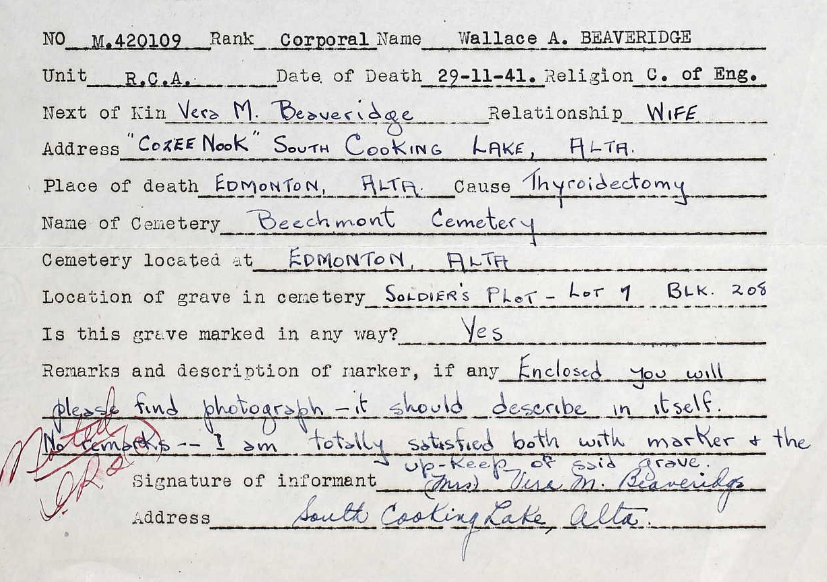 NO M.420109 Rank Corporal Name Wallace A. BEAVERIDGE
Unit R.C.A. Date of Death 29-11-41. Religion C. of Eng.
Next of Kin Vera M. Beaveridge Relationship WIFE
Address "COZEE NOOK" SOUTH COOKING LAKE, ALTA.
Place of death EDMONTON, ALTA. Cause Thyroidectomy
Name of Cemetery Beechmont Cemetery
Cemetery located at EDMONTON, ALTA
Location of grave in cemetery SOLDIER'S PLOT - LOT 7 BLK. 208
Is this grave marked in any way? Yes
Remarks and description of marker, if any Enclosed you will
please find photograph - it should describe in itself.
No remarks -- I am totally satisfied both with marker & the
up-keep of said grave.
Noted
Signature of informant (Mrs) Vera M. Beaveridge
Address South Cooking Lake, Alta.